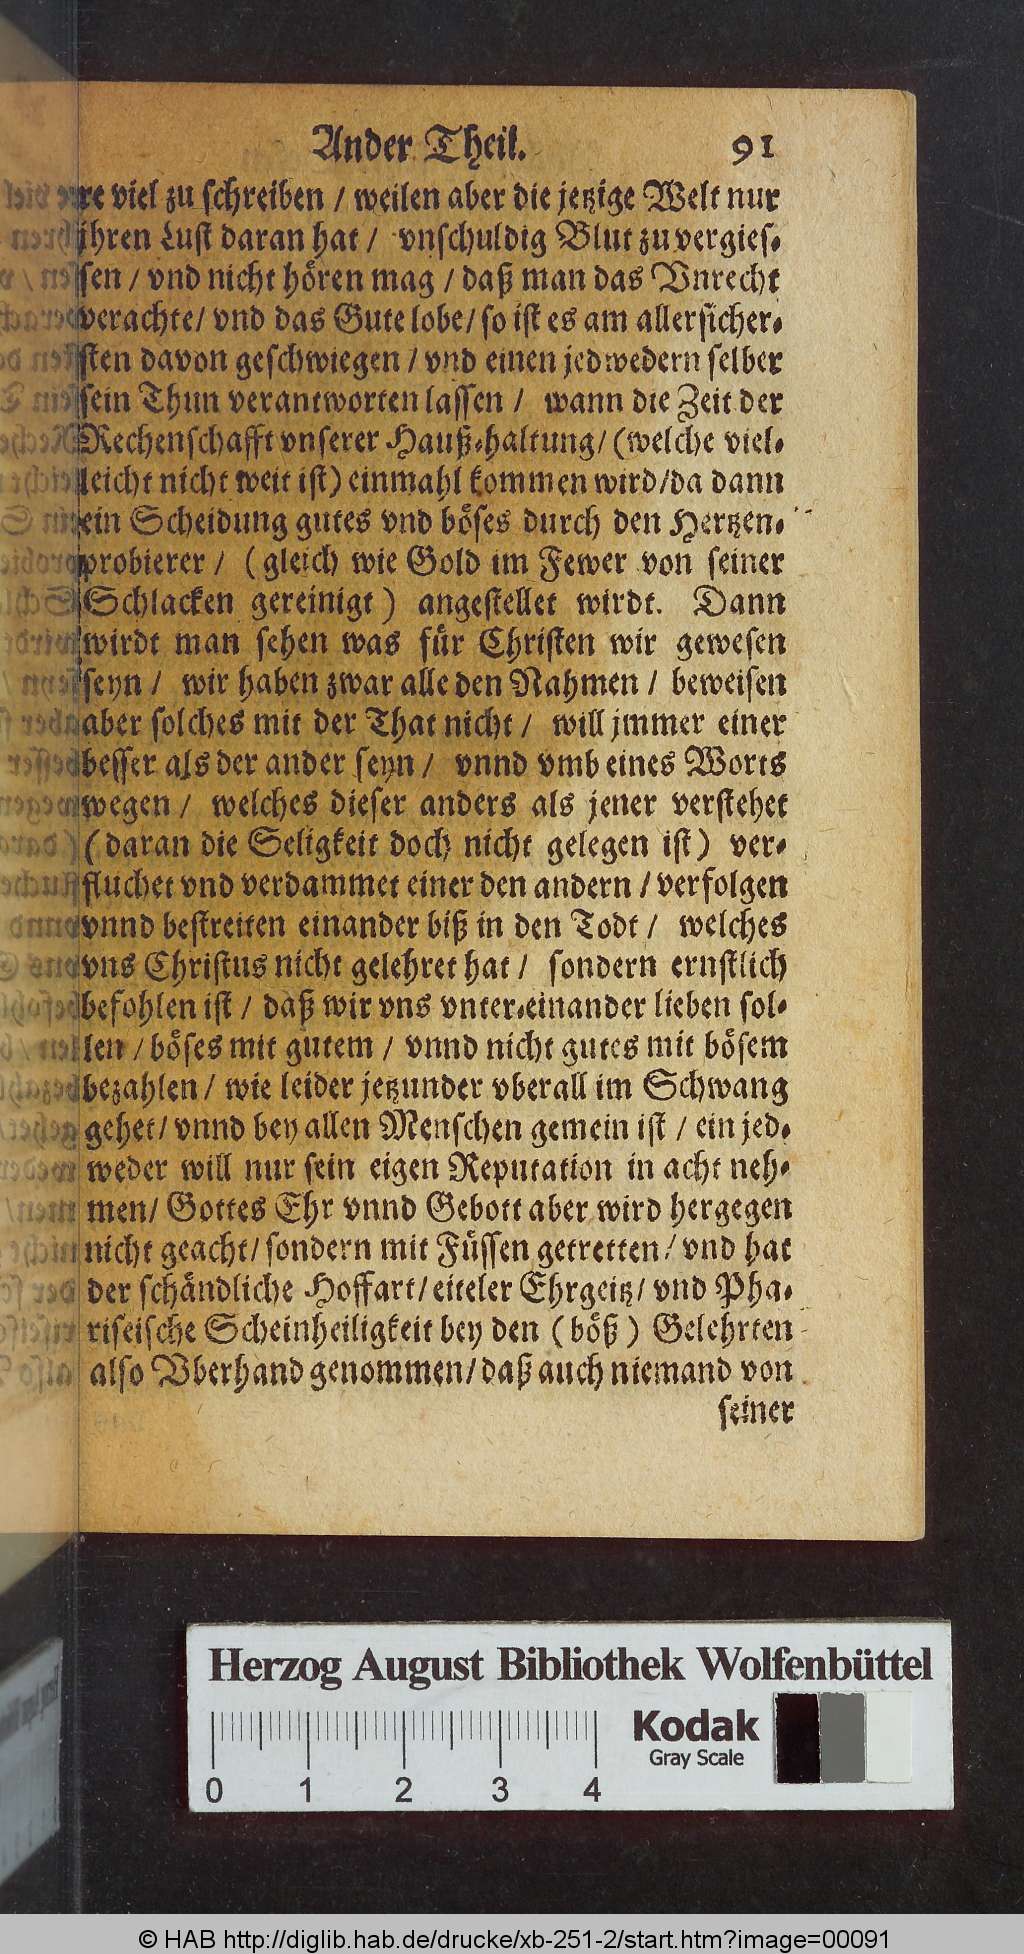 Ander Theil. 91
re viel zu schreiben / weilen aber die jetzige Welt nur
ihren Lust daran hat / vnschuldig Blut zu vergies-
sen / vnd nicht hören mag / daß man das Vnrecht
verachte / vnd das Gute lobe / so ist es am allersicher-
sten davon geschwiegen / vnd einen jedwedern selber
sein Thun verantworten lassen / wann die Zeit der
Rechenschafft vnserer Hauß-haltung / (welche viel-
leicht nicht weit ist) einmahl kommen wird / da dann
ein Scheidung gutes vnd böses durch den Hertzen-
probierer / (gleich wie Gold im Fewer von seiner
Schlacken gereinigt) angestellet wirdt. Dann
wirdt man sehen was für Christen wir gewesen
seyn / wir haben zwar alle den Nahmen / beweisen
aber solches mit der That nicht / will jmmer einer
besser als der ander seyn / vnnd vmb eines Worts
wegen / welches dieser anders als jener verstehet
(daran die Seligkeit doch nicht gelegen ist) ver-
fluchet vnd verdammet einer den andern / verfolgen
vnnd bestreiten einander biß in den Todt / welches
vns Christus nicht gelehret hat / sondern ernstlich
befohlen ist / daß wir vns vnter-einander lieben sol-
len / böses mit gutem / vnnd nicht gutes mit bösem
bezahlen / wie leider jetzunder vberall im Schwang
gehet / vnnd bey allen Menschen gemein ist / ein jed-
weder will nur sein eigen Reputation in acht neh-
men / Gottes Ehr vnnd Gebott aber wird hergegen
nicht geacht / sondern mit Füssen getretten / vnd hat
der schändliche Hoffart / eiteler Ehrgeitz / vnd Pha-
riseische Scheinheiligkeit bey den (böß) Gelehrten
also Vberhand genommen / daß auch niemand von
seiner
Herzog August Bibliothek Wolfenbüttel
Kodak
Gray Scale
0 1 2 3 4
© HAB http://diglib.hab.de/drucke/xb-251-2/start.htm?image=00091